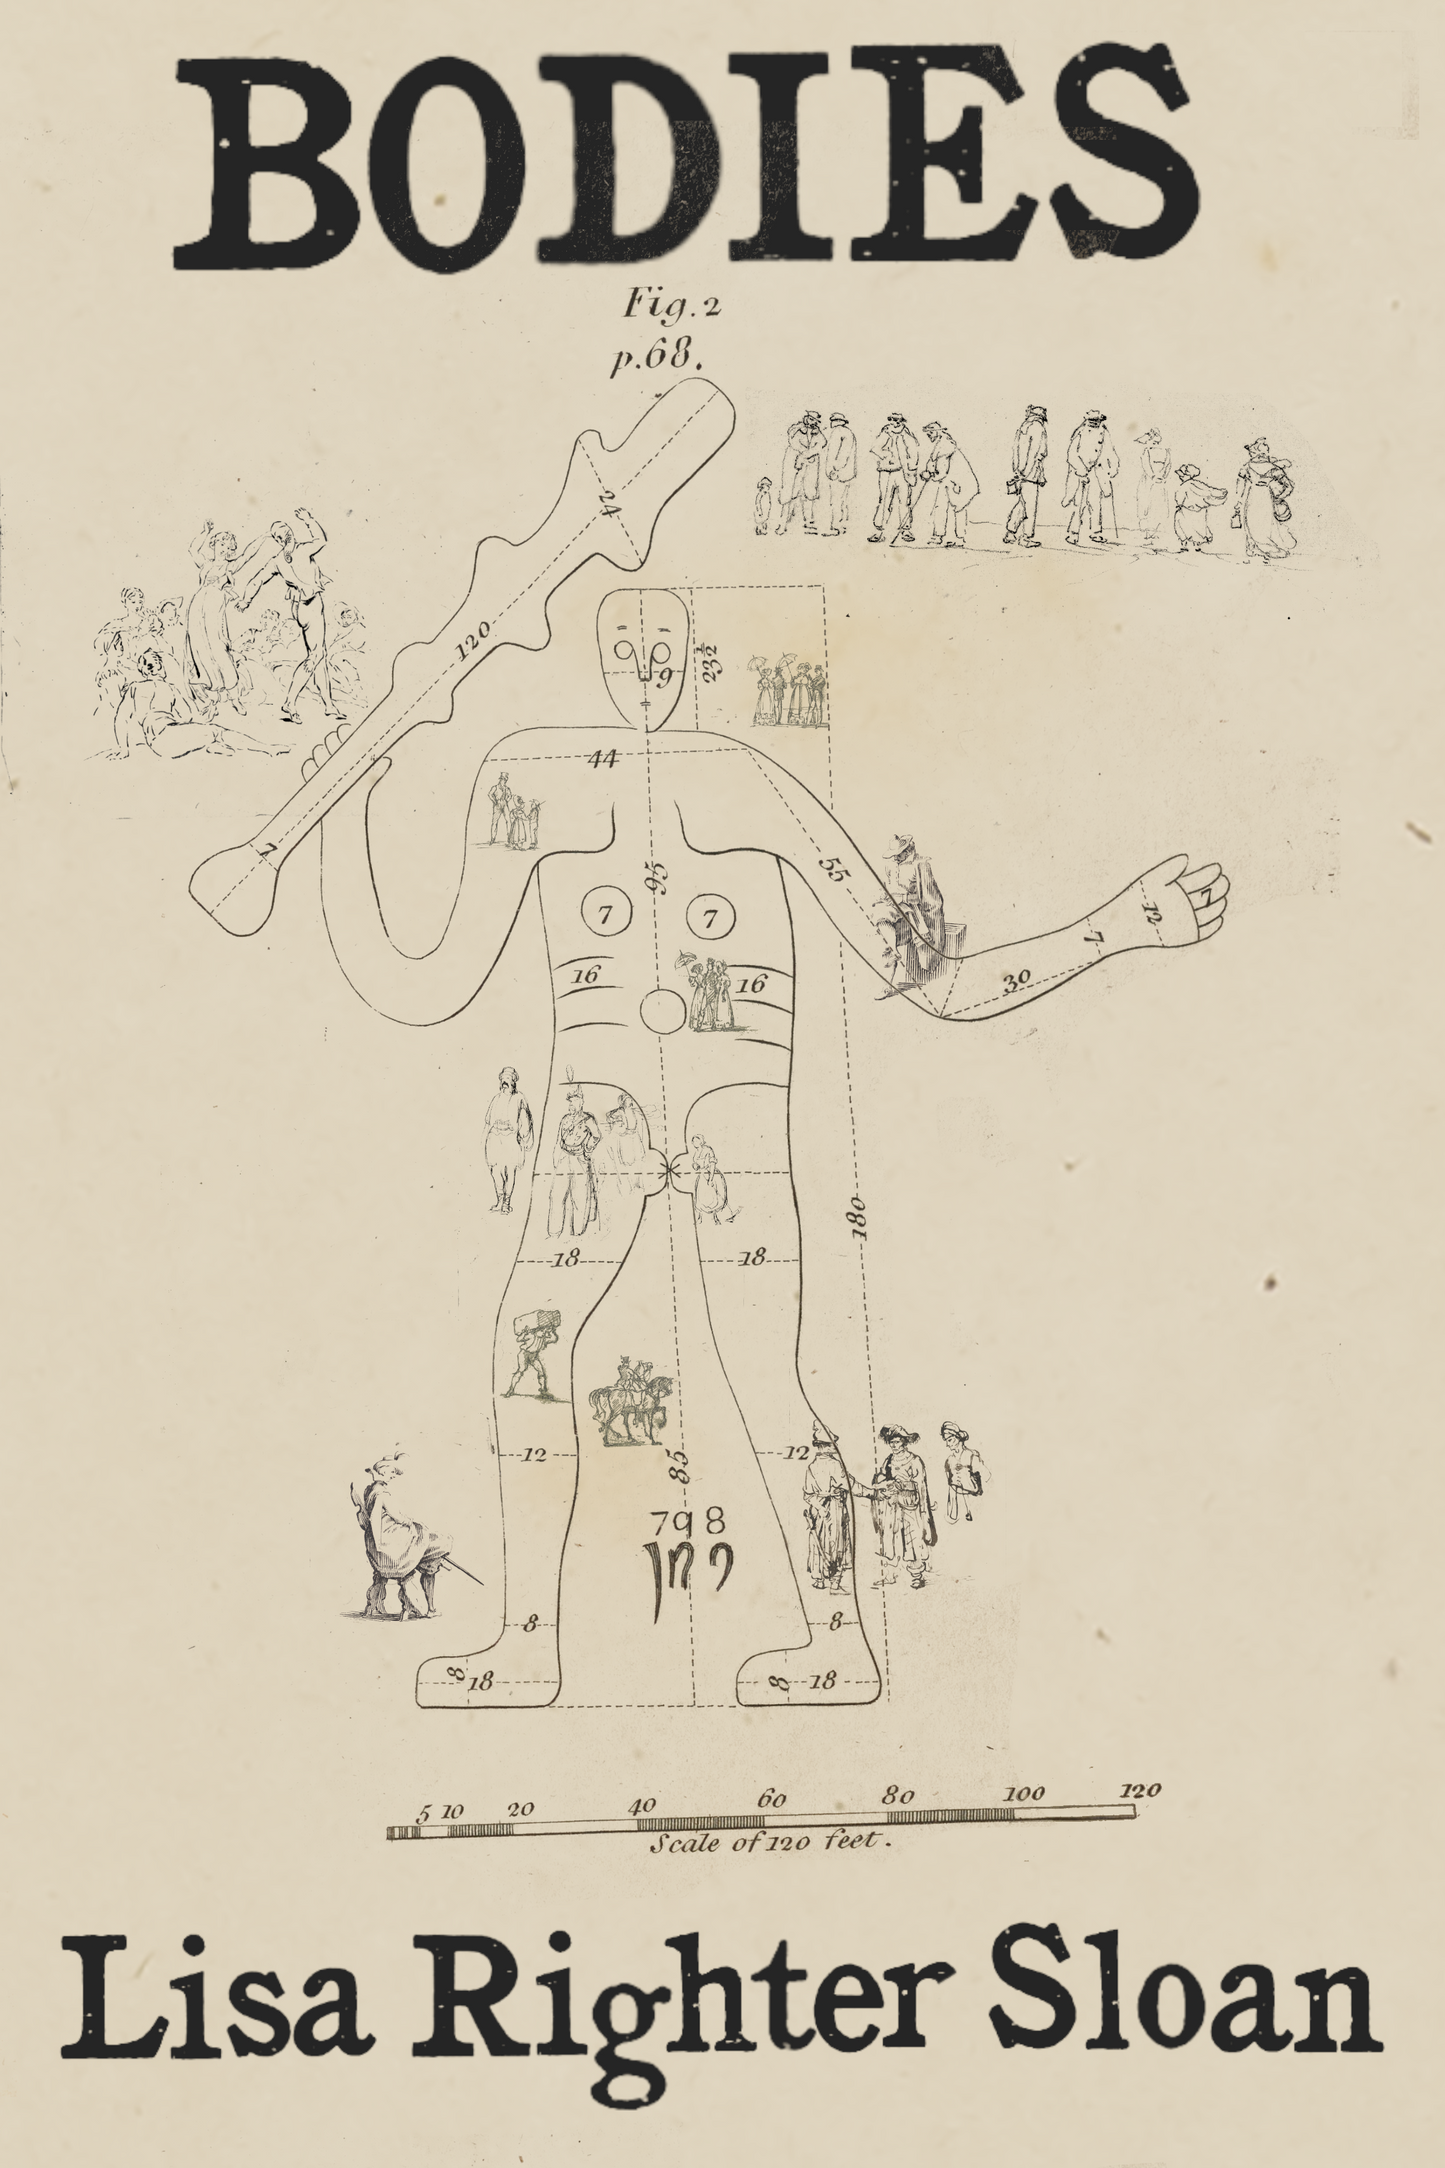 BODIES
Fig. 2
p. 68.
24
120
23½
9
44
7
55
95
7
7
12
7
7
16
16
30
180
18
18
12
12
85
798
8
8
8
18
8
18
5 10 20 40 60 80 100 120
Scale of 120 feet.
Lisa Righter Sloan